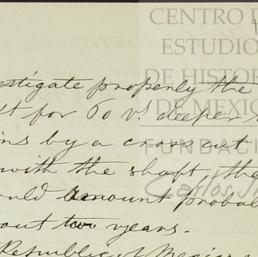 CENTRO D
ESTUDIO
DE HISTOR
DE MEXIC
FUNDACI
Carlos S
estigate properly the
ft for 60 vs. deeper
ns by a cross cut
with the shaft, the
ould amount probab
out two years.
Republic of Mexico